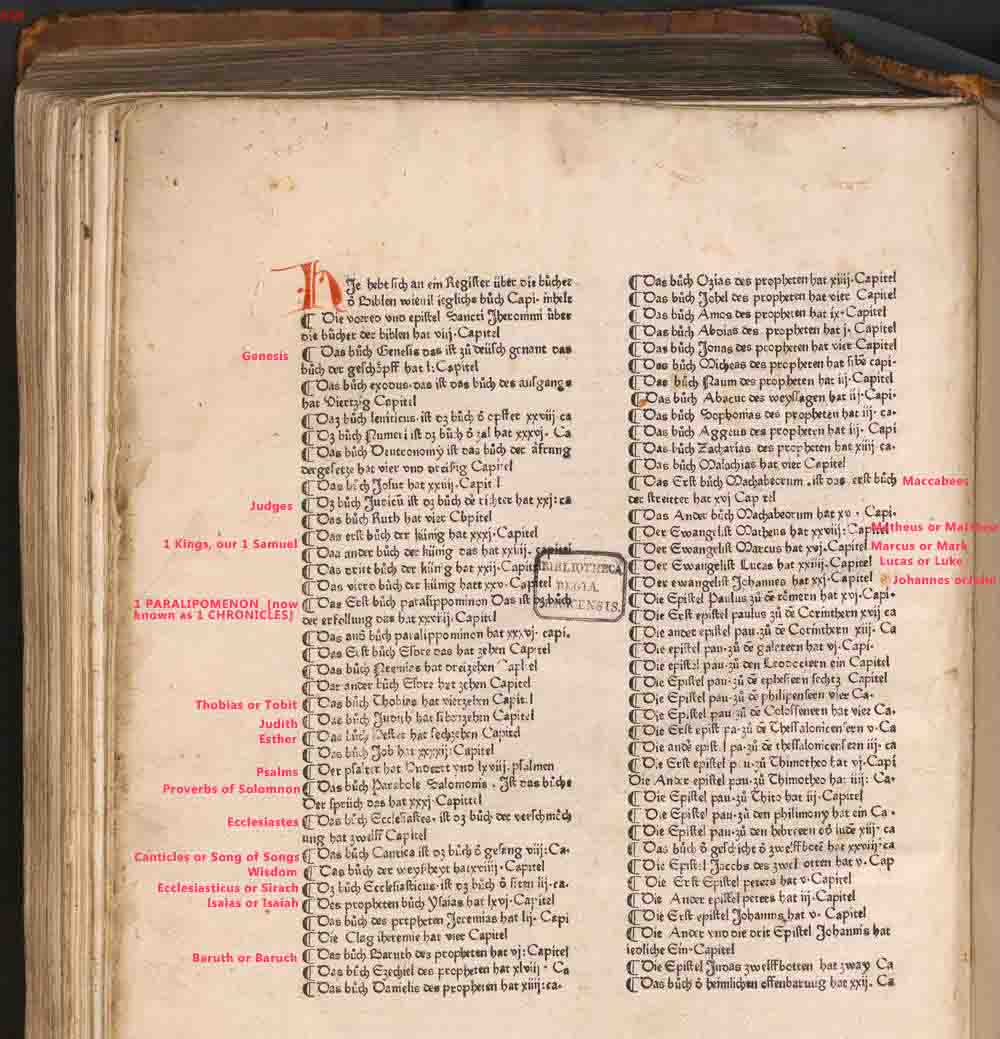 HJe hebt sich an ein Register über die bůcher
ð Biblen wieuil jeglichs bůch Capi. inhelt
¶ Die vorred vnd epistel Sancti Jheronimi über
die bůcher der biblen hat viij. Capitel
Genesis
¶ Das bůch Genesis das ist zů deüsch genant das
bůch der geschöpff hat l: Capitel
¶ Das bůch exodus. das ist das bůch des aufgangs
hat Viertzig Capitel
¶ Daz bůch leuiticus. ist dz bůch ð opffer xxvij ca
¶ Dz bůch Numeri ist dz bůch ð zal hat xxxvj. Ca
¶ Das bůch Deutronomÿ ist das bůch der äfrung
der gesetze hat vier vnd dreißig Capitel
¶ Das bůch Josue hat xxiiij. Capitel
Judges
¶ Dz bůch Judicū ist dz bůch dē richter hat xxj: ca
¶ Das bůch Ruth hat vier Cbpitel
1 Kings, our 1 Samuel
¶ Das erst bůch der künig hat xxxj. Capitel
¶ Daa ander bůch der künig das hat xxiiij. capitel
¶ Das dritt bůch der künig hat xxij. Capitel
¶ Das vierd bůch der künig hatt xxv. Capitel
1 PARALIPOMENON (now
known as 1 CHRONICLES)
¶ Das Erst bůch paralippominon Das ist dz bůch
der erfollung das hat xxviiij. Capitel
¶ Das and bůch paralippominon hat xxxvj. capi.
¶ Das Erst bůch Esdre das hat zehen Capitel
¶ Das bůch Neemias hat dreizehen Capitel
¶ Dar ander bůch Esdre hat zehen Capitel
Thobias or Tobit
¶ Das bůch Thobias hat vierzehen Capitel
Judith
¶ Das bůch Judith hat sibenzehen Capitel
Esther
¶ Das bůch Hester hat sechzehen Capitel
¶ Das bůch Job hat xxxxij: Capitel
Psalms
¶ Der psalter hat Hundert vnd lxviij. psalmen
Proverbs of Solomnon
¶ Das bůch Parabole Salomonis. Jst das bůche
Der sprüch das hat xxxj Capittel
Ecclesiastes
¶ Das bůch Ecclesiastes. ist dz bůch der verschmäch
ung hat zwelff Capitel
Canticles or Song of Songs
¶ Das bůch Cantica ist dz bůch ð gesang viij: Ca.
Wisdom
¶ Das bůch der weyßheyt hat xviiij. Capitel
Ecclesiasticus or Sirach
¶ Dz bůch Ecclesiasticus. ist dz bůch ð sitten lij. ca.
Isaias or Isaiah
¶ Des propheten bůch Ysaias hat lxvj. Capitel
¶ Das bůch des propheten Jeremias hat lij. Capi
¶ Die Clag iheremie hat vier Capitel
Baruth or Baruch
¶ Das bůch Baruth des propheten hat vj: Capitel
¶ Das bůch Ezechiel des propheten hat xlviij. Ca
¶ Das bůch Danielis des propheten hat xiiij: ca.
BIBLIOTHECA
REGIA
MONACENSIS.
¶ Das bůch Ozias des propheten hat xiiij. Capitel
¶ Das bůch Johel des propheten hat vier Capitel
¶ Das bůch Amos des propheten hat ix. Capitel
¶ Das bůch Abdias des propheten hat j. Capitel
¶ Das bůch Jonas des propheten hat vier Capitel
¶ Das bůch Micheas des propheten hat sibē capi.
¶ Das bůch Naum des propheten hat iij. Capitel
¶ Das bůch Abacuc des weyssagen hat iij. Capi.
¶ Das bůch Sophonias des propheten hat iij. ca.
¶ Das bůch Aggeus des propheten hat ij. Capi
¶ Das bůch Zacharias des propheten hat xiiij ca.
¶ Das bůch Malachias hat vier Capitel
¶ Das Erst bůch Machabeorum. ist das erst bůch
Maccabees
der streitter hat xvj Capitel
¶ Das Ander bůch Machabeorum hat xv. Capi.
¶ Der Ewangelist Matheus hat xxviij: Capitel
Matheus or Matthew
¶ Der Ewangelist Marcus hat xvj. Capitel
Marcus or Mark
¶ Der Ewangelist Lucas hat xxiiij. Capitel
Lucas or Luke
¶ Der ewangelist Johannes hat xxj. Capitel
Johannes or John
¶ Die Epistel Paulus zů dē römern hat xvj. Capi.
¶ Die Erst epistel paulus zů dē Corinthern xvij ca
¶ Die ander epistel pau. zů dē Corinthern xiij. Ca
¶ Die epistel pau. zů dē galatern hat vj. Capi.
¶ Die epistel pau. zů den Leodceiern ein Capitel
¶ Die Epistel pau. zů dē ephesiern sechtz Capitel
¶ Die Epistel pau. zů dē philipensern vier Ca.
¶ Die Epistel pau. zů dē Colossensern hat vier Ca.
¶ Die Erst epist pa. zů dē Thessalonicensern v. Ca
¶ Die andē epist. pa. zů dē thessalonicensern iij. ca
¶ Die Erst epistel pau. zů Thimotheo hat vj. Capi
Die Ander epistel pau. zů Thimotheo hat iiij: Ca.
¶ Die Epistel pau. zů Thito hat iij. Capitel
¶ Die Epistel pau. zů den philimony hat ein Ca.
¶ Die Epistel pau. zů den hebreern oð iudē xiij. ca
¶ Das bůch ð geschicht ð zwelffboten hat xxviij ca
¶ Die Epistel Jacobs des zwelfbotten hat v. Cap
¶ Die Erst Epistel peters hat v. Capitel
¶ Die Ander epistel peters hat iij. Capitel
¶ Die Erst epistel Johannis hat v. Capitel
¶ Die Ander vnd die drit Epistel Johannis hat
iedliche Ein. Capitel
¶ Die Epistel Judas zwelffbotten hat zway Ca
¶ Das bůch ð heimlichen offenbarung hat xxij. Ca